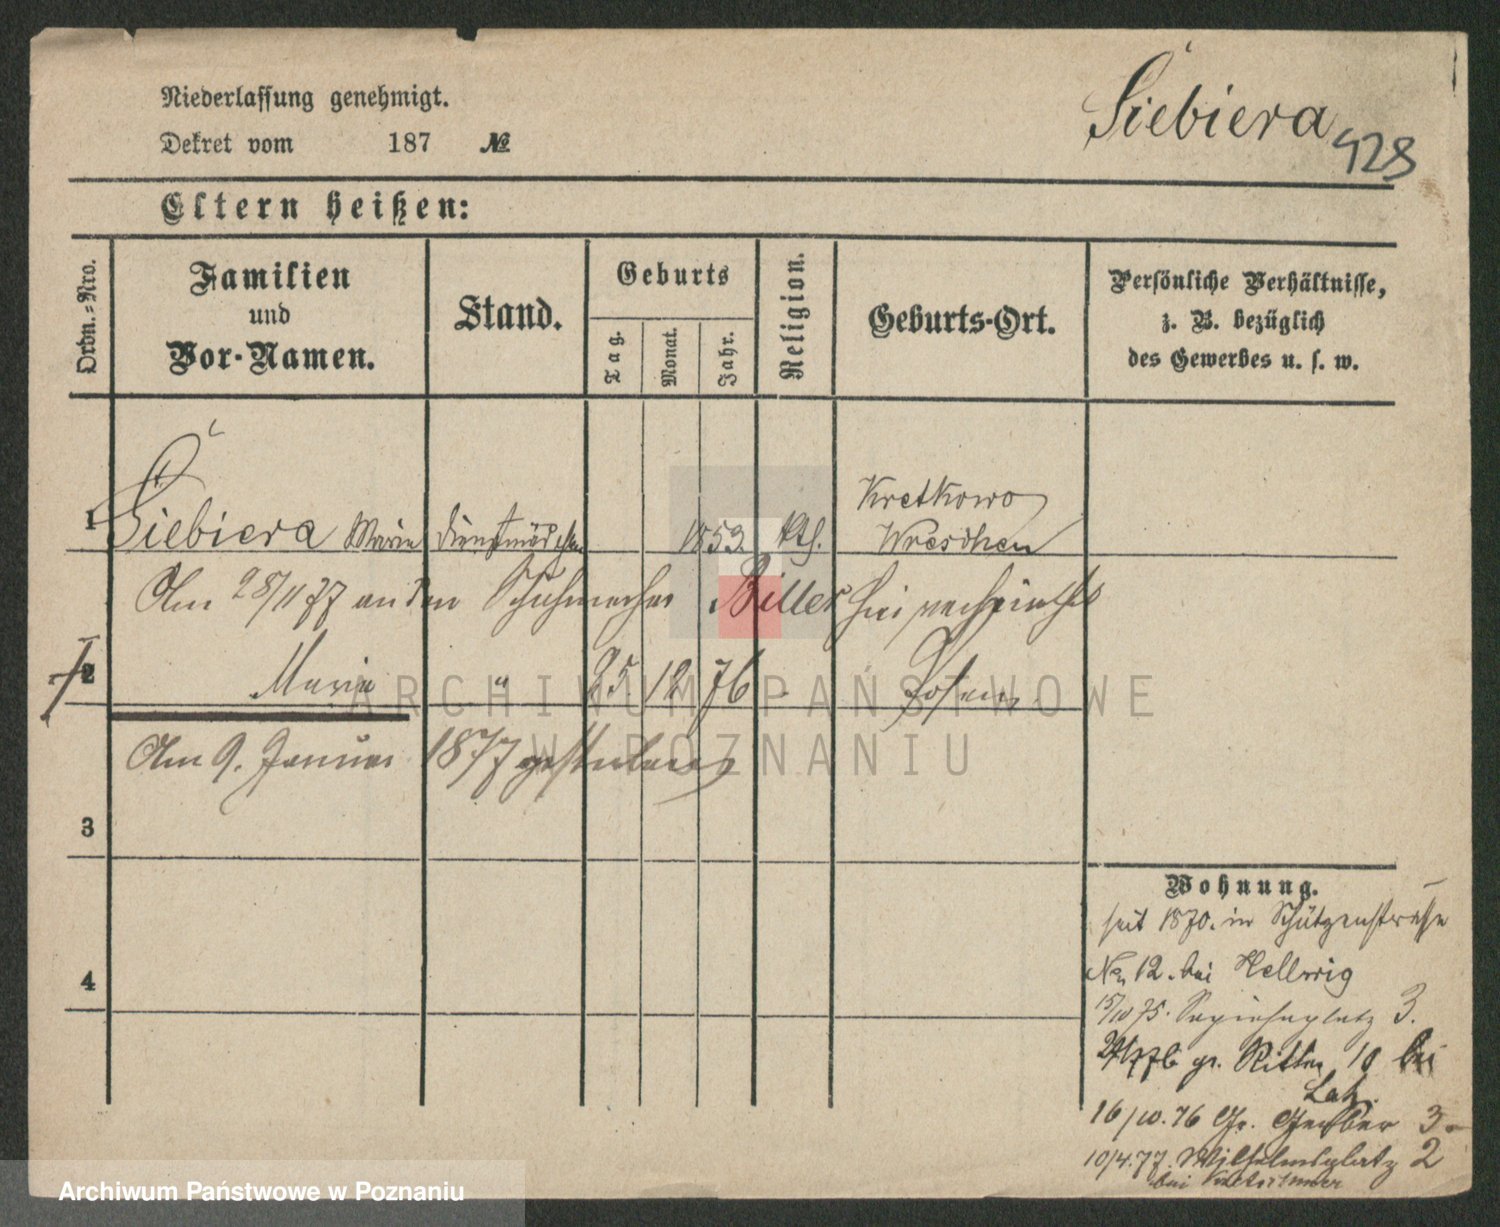 Niederlassung genehmigt.
Śiebiera
428
Dekret vom 187 №
Eltern heißen:
Ordn.-Nro.
Familien
und
Vor-Namen.
Stand.
Geburts
Tag.
Monat.
Jahr.
Religion.
Geburts-Ort.
Persönliche Verhältnisse,
z. B. bezüglich
des Gewerbes u. s. w.
1 Śiebiera Marie Dienstmädchen 1853. kth. Kretkowo
Wreschen
Am 28/11 77 an den Schuhmacher Biller hier verheirathet
2 Maria " 25. 12 76 Posen
Am 9. Januar 1877 gestorben
3
4
Wohnung.
seit 1870. in Schützenstrasse
No 12. bei Hellwig
15/10 75. Sapiehaplatz 3.
gr. Ritter 10 bei
16/10. 76 Gr. Gerber 3
10/4. 77. Wilhelmsplatz 2
bei
ARCHIWUM PAŃSTWOWE
W POZNANIU
Archiwum Państwowe w Poznaniu